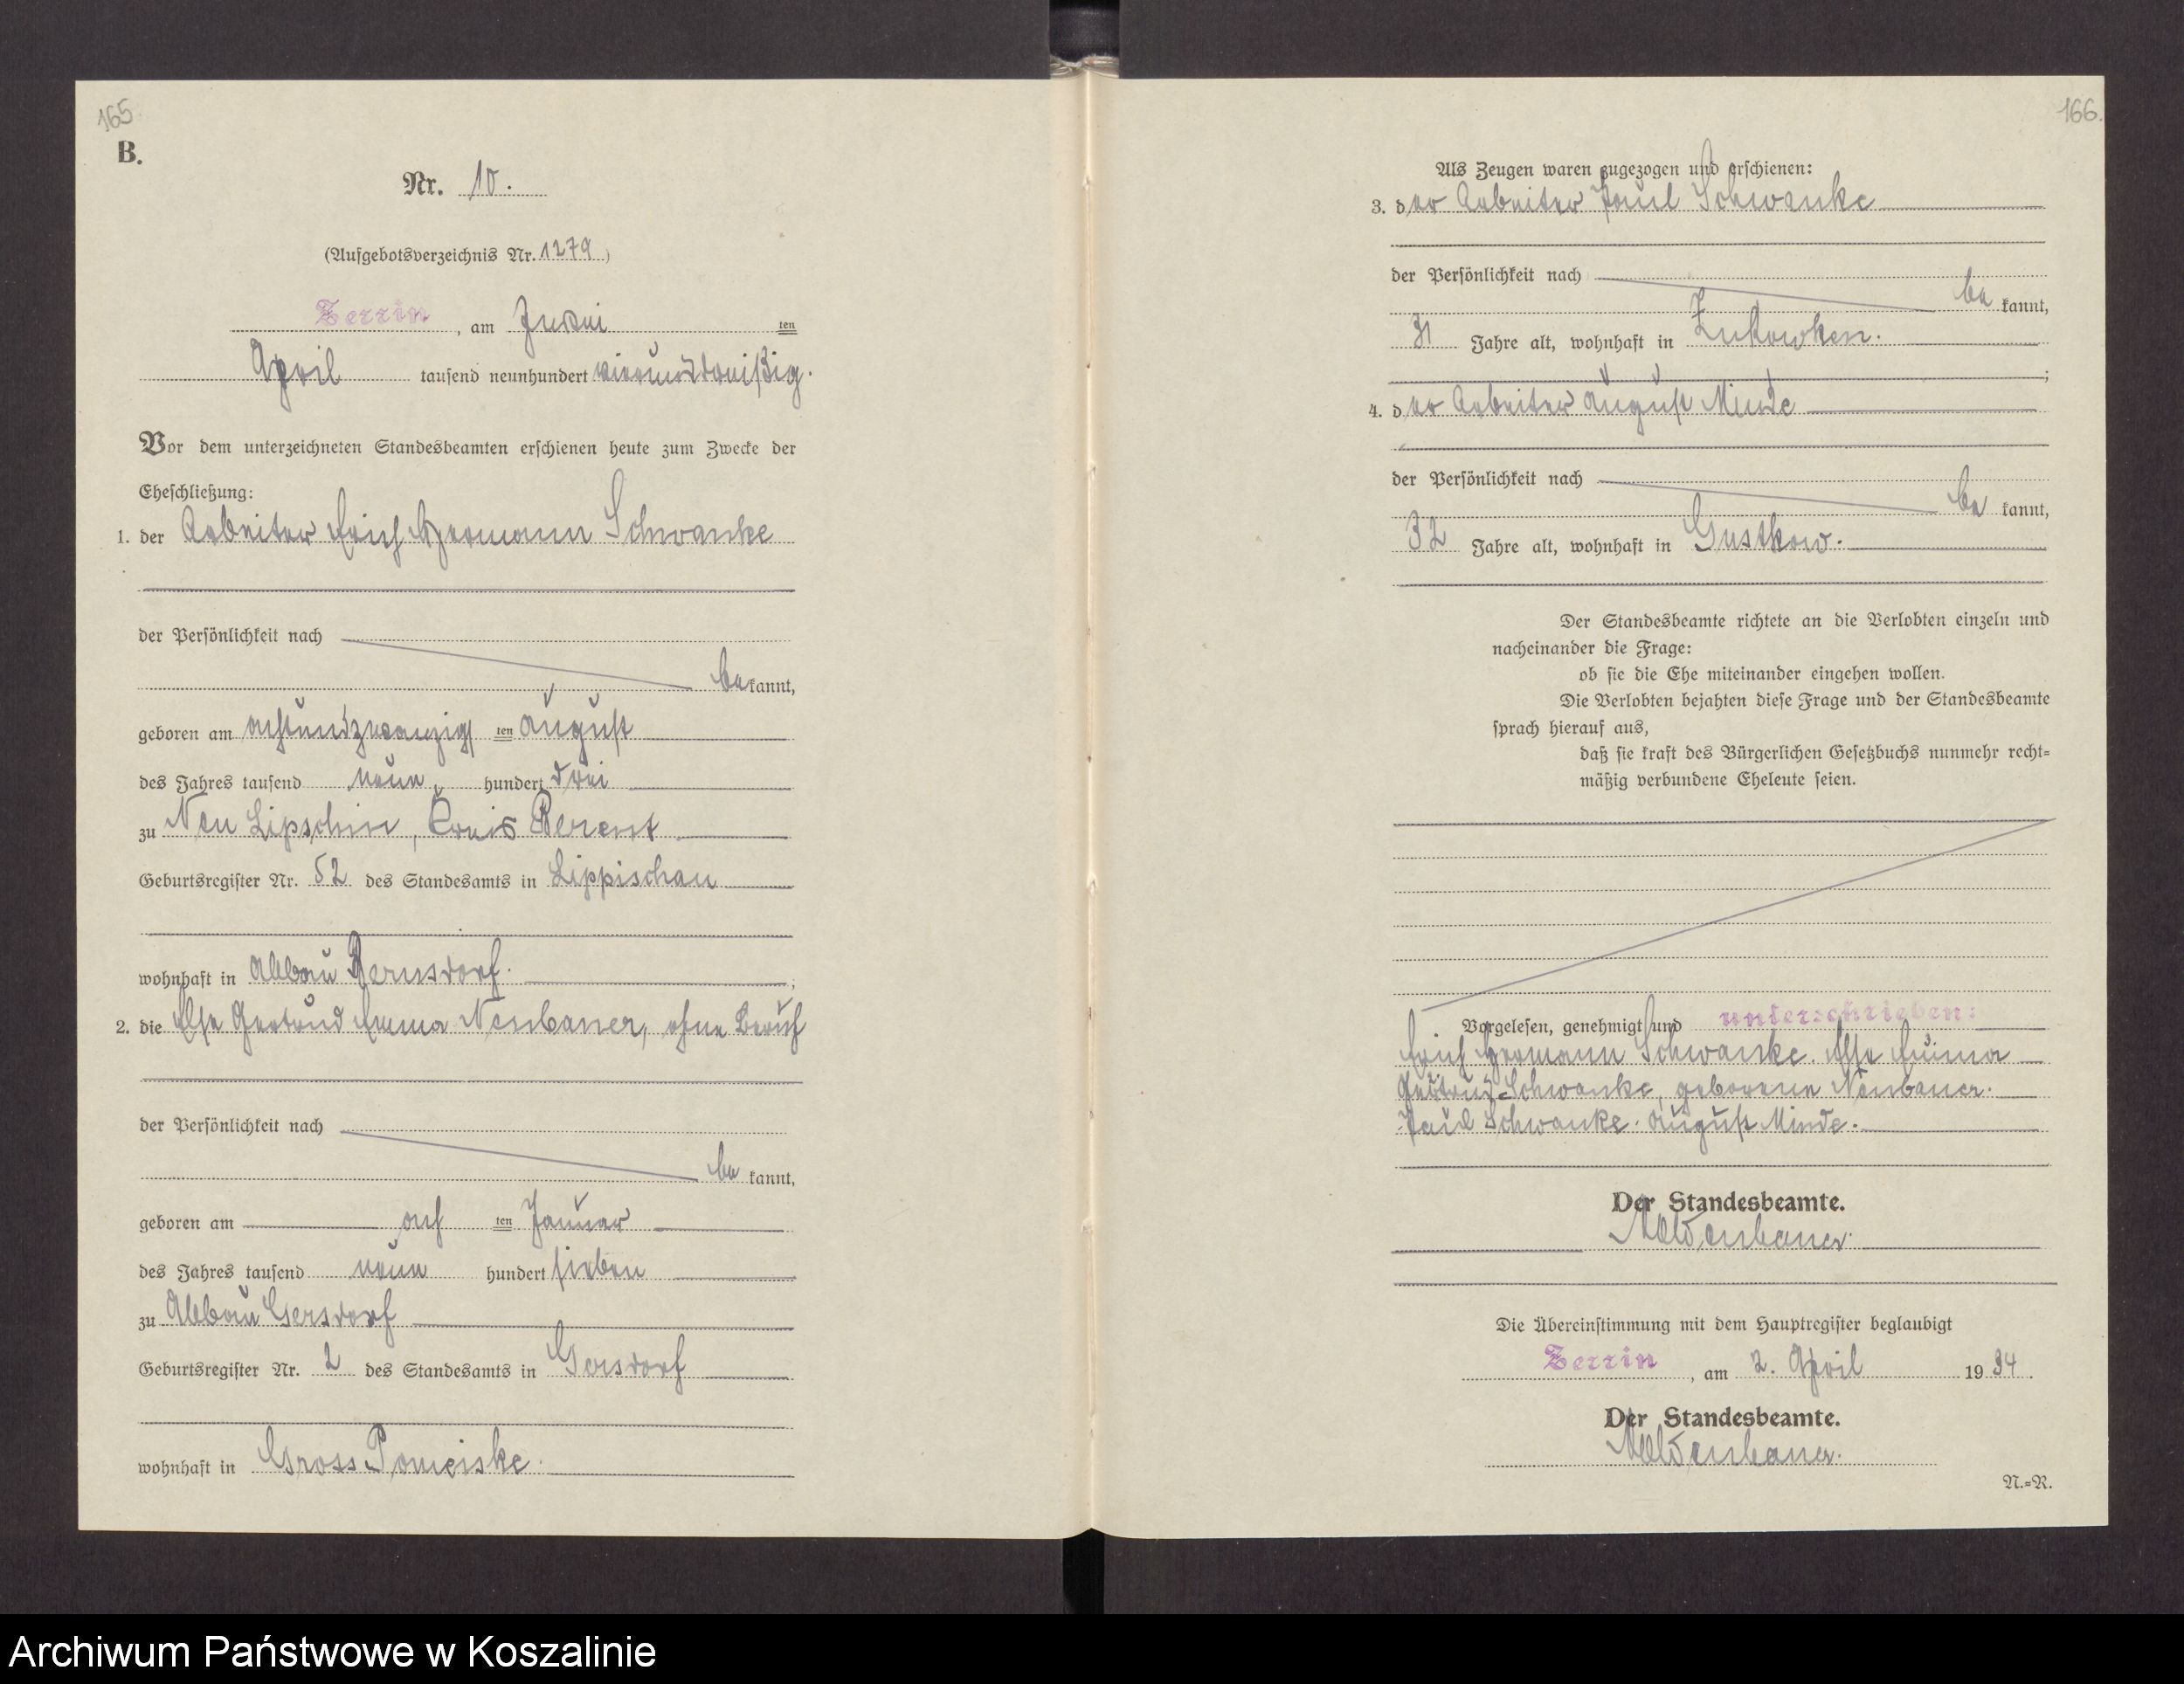 165
B.
Nr. 10.
(Aufgebotsverzeichnis Nr. 1279.)
Zerrin, am Zwei ten
April tausend neunhundert vierunddreißig.
Vor dem unterzeichneten Standesbeamten erschienen heute zum Zwecke der
Eheschließung:
1. der Arbeiter Erich Hermann Schwanke
der Persönlichkeit nach
be kannt,
geboren am achtundzwanzig ten August
des Jahres tausend neun hundert drei
zu Neu Lipschin, Kreis Berent
Geburtsregister Nr. 52 des Standesamts in Lippischau
wohnhaft in Abbau Bernsdorf.;
2. die Else Gertrud Emma Neubauer, ohne Beruf
der Persönlichkeit nach
be kannt,
geboren am ach ten Januar
des Jahres tausend neun hundert sieben
zu Abbau Gersdorf
Geburtsregister Nr. 2 des Standesamts in Gersdorf
wohnhaft in Gross Pomeiske.
166.
Als Zeugen waren zugezogen und erschienen:
3. der Arbeiter Paul Schwanke
der Persönlichkeit nach
be kannt,
31 Jahre alt, wohnhaft in Zukowken.
;
4. der Arbeiter August Minde
der Persönlichkeit nach
be kannt,
32 Jahre alt, wohnhaft in Gustkow.
Der Standesbeamte richtete an die Verlobten einzeln und
nacheinander die Frage:
ob sie die Ehe miteinander eingehen wollen.
Die Verlobten bejahten diese Frage und der Standesbeamte
sprach hierauf aus,
daß sie kraft des Bürgerlichen Gesetzbuchs nunmehr recht=
mäßig verbundene Eheleute seien.
Vorgelesen, genehmigt und unterschrieben:
Erich Hermann Schwanke. Else Emma
Gertrud Schwanke, geborene Neubauer.
Paul Schwanke. August Minde.
Der Standesbeamte.
Die Übereinstimmung mit dem Hauptregister beglaubigt
Zerrin, am 2. April 1934.
Der Standesbeamte.
N.=R.
Archiwum Państwowe w Koszalinie